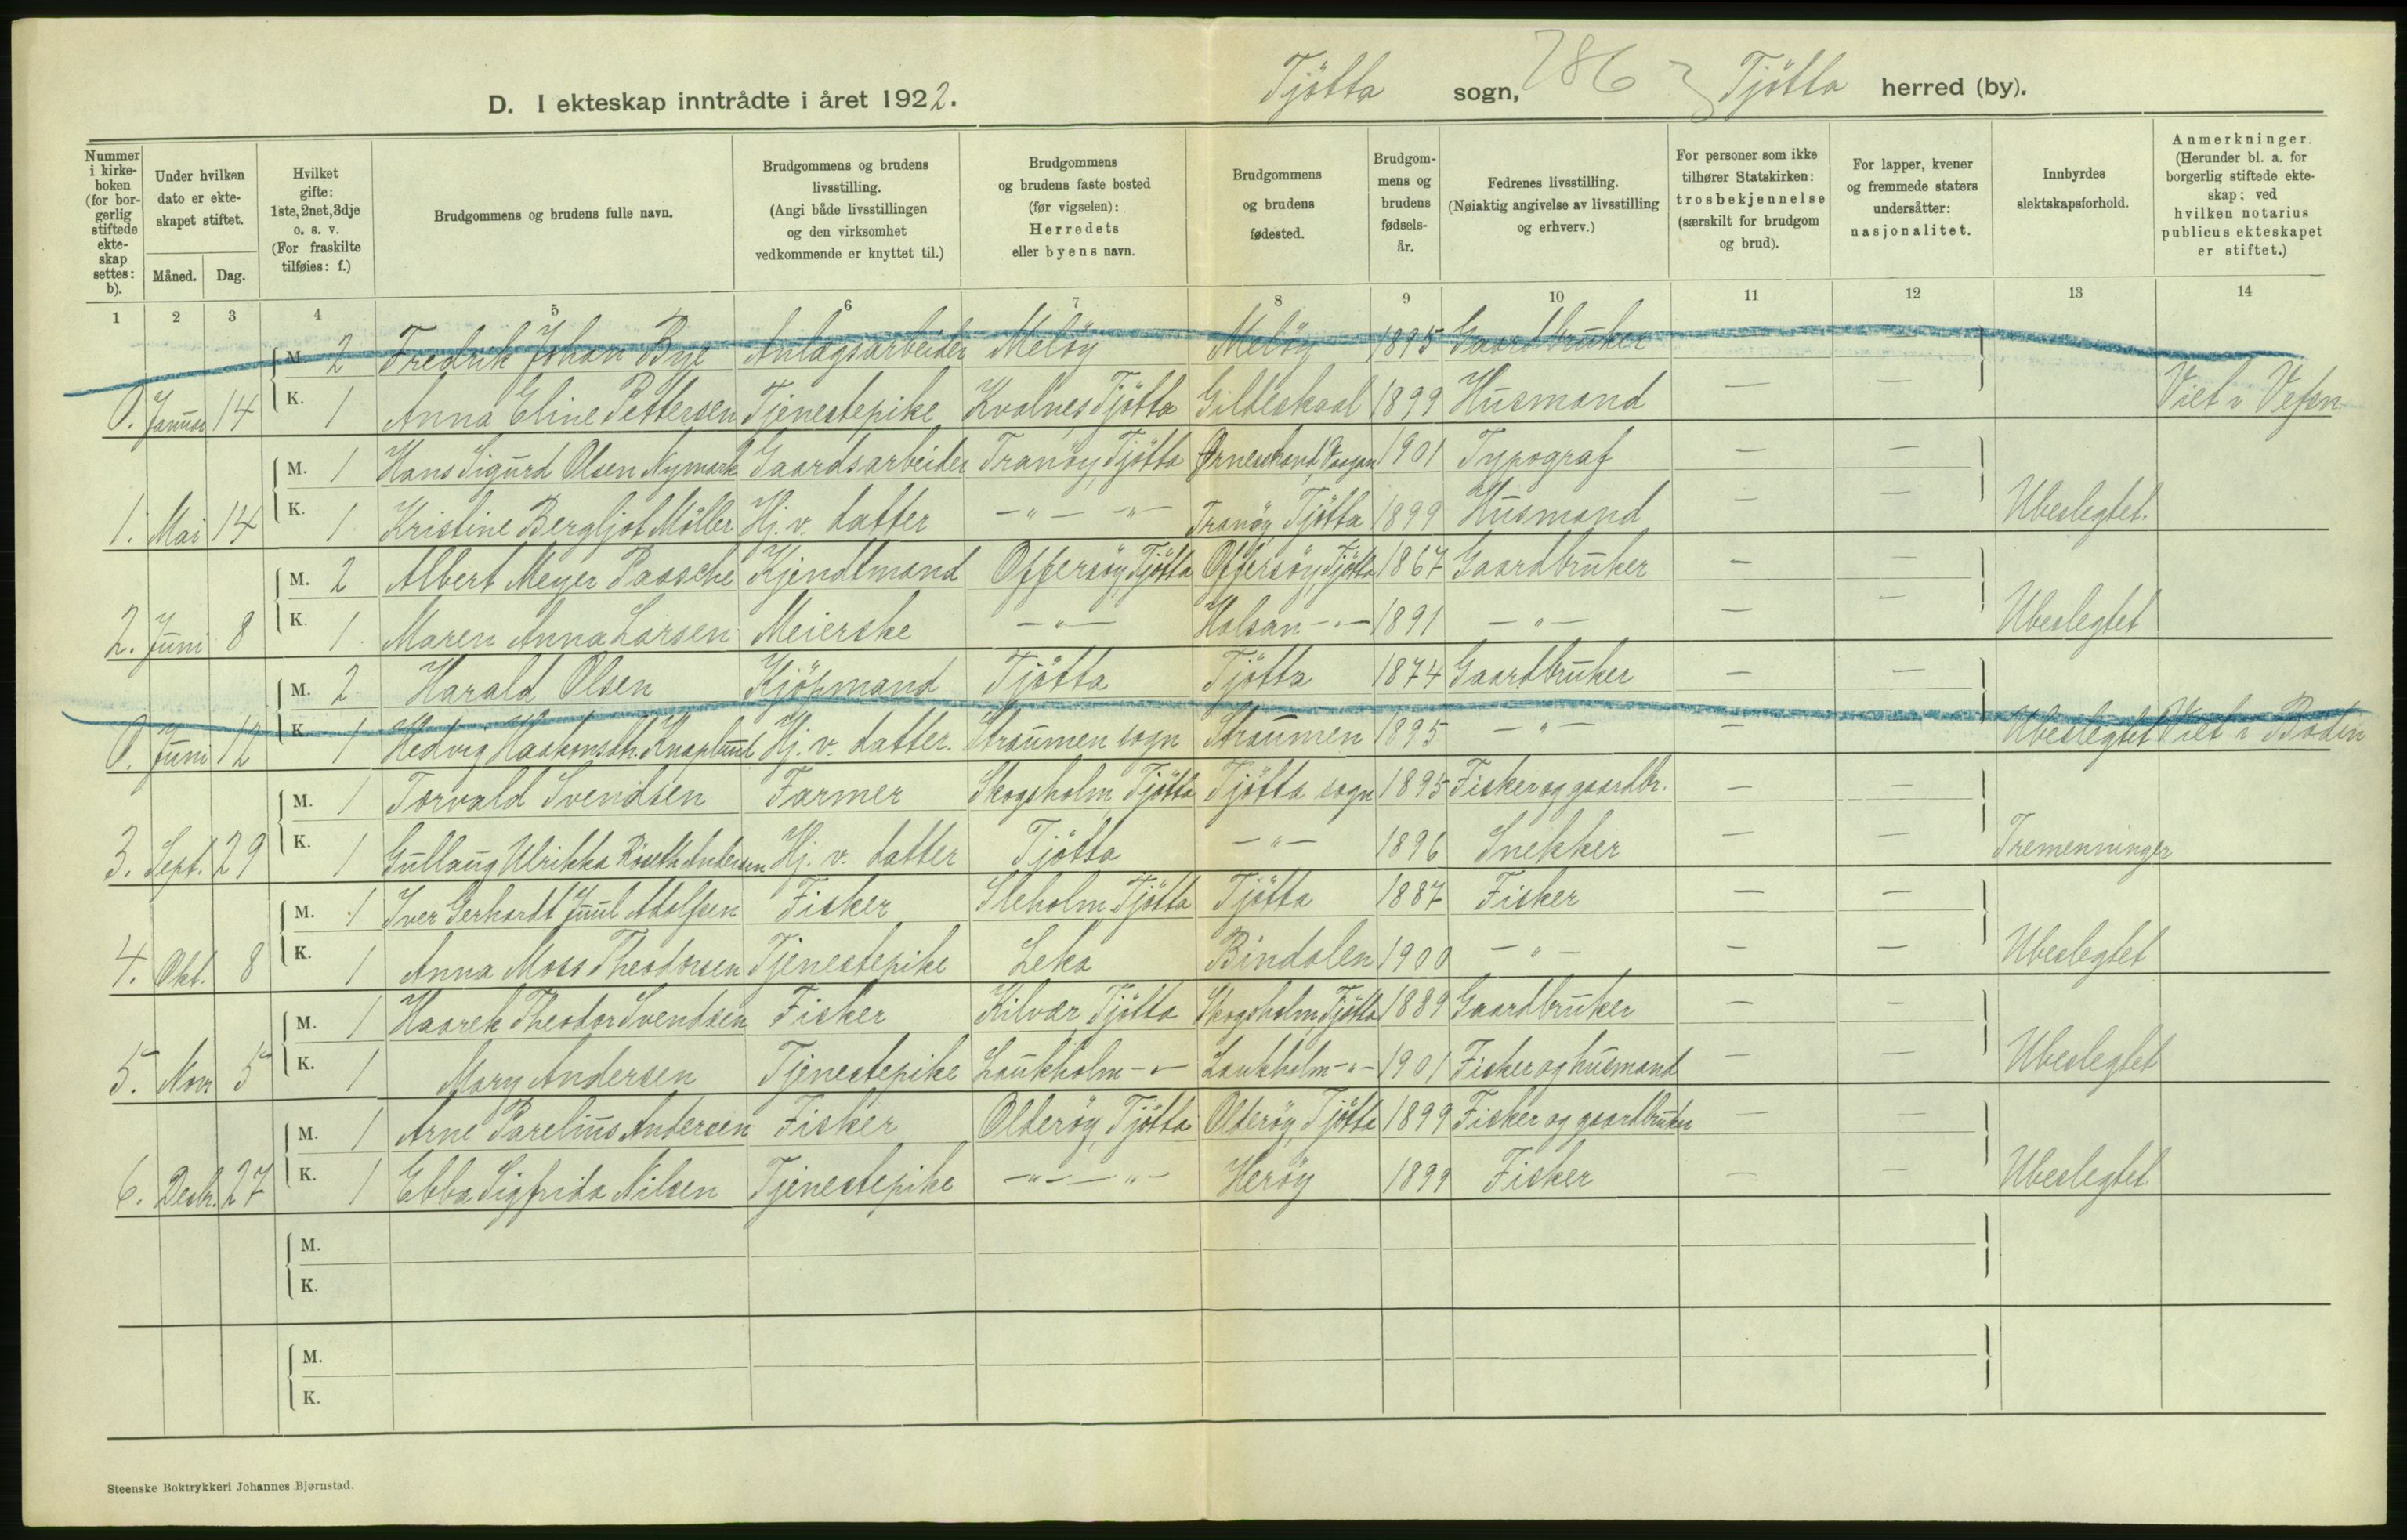 D. I ekteskap inntrådte i året 1922. Tjötta sogn, 786 Tjötta herred (by).
Nummer i kirkeboken (for borgerlig stiftede ekteskap settes: b).
Under hvilken dato er ekteskapet stiftet.
Måned. Dag.
Hvilket gifte: 1ste, 2net, 3dje o. s. v. (For fraskilte tilføies: f.)
Brudgommens og brudens fulle navn.
Brudgommens og brudens livsstilling. (Angi både livsstillingen og den virksomhet vedkommende er knyttet til.)
Brudgommens og brudens faste bosted (før vigselen): Herredets eller byens navn.
Brudgommens og brudens fødested.
Brudgommens og brudens fødselsår.
Fedrenes livsstilling. (Nøiaktig angivelse av livsstilling og erhverv.)
For personer som ikke tilhører Statskirken: trosbekjennelse (særskilt for brudgom og brud).
For lapper, kvener og fremmede staters undersåtter: nasjonalitet.
Innbyrdes slektskapsforhold.
Anmerkninger. (Herunder bl. a. for borgerlig stiftede ekteskap: ved hvilken notarius publicus ekteskapet er stiftet.)
1 2 3 4 5 6 7 8 9 10 11 12 13 14
M. 2 Fredrik Johan Bye Anlagsarbeider Melöy Melöy 1895 Gaardbruker — —
0. Januar 14 K. 1 Anna Eline Pettersen Tjenestepike Kvalnes, Tjötta Gildeskaal 1899 Husmand — — Viet i Vefsn
M. 1 Hans Sigurd Olsen Nymark Gaardsarbeider Tranöy, Tjötta Vaagan 1901 Typograf — —
1. Mai 14 K. 1 Kristine Bergljot Möller Hj. v. datter — " — — " — Tranöy, Tjötta 1899 Husmand — — Ubeslegtet.
M. 2 Albert Meyer Paasche Kjendtmand Offersöy, Tjötta Offersöy, Tjötta 1867 Gaardbruker — —
2. Juni 8 K. 1 Maren Anna Larsen Meierske — " — Holsan — " — 1891 — " — — — Ubeslegtet
M. 2 Harald Olsen Kjöpmand Tjötta Tjötta 1874 Gaardbruker — —
0. Juni 12 K. 1 Hedvig Haakonsdtr. Knaplund Hj. v. datter. Straumen sogn Straumen 1895 — " — — Ubeslegtet Viet i Bodin
M. 1 Torvald Svendsen Farmer Skogsholm, Tjötta Tjötta sogn 1895 Fisker og gaardbr. — —
3. Sept. 29 K. 1 Gullaug Ulrikka Röseth Andersen Hj. v. datter Tjötta — " — 1896 Snekker — — Tremenninger
M. 1 Iver Gerhardt Juul Adolfsen Fisker Sleholm, Tjötta Tjötta 1887 Fisker — —
4. Okt. 8 K. 1 Anna Moss Theodorsen Tjenestepike Leka Bindalen 1900 — " — — — Ubeslegtet
M. 1 Haarek Theodor Svendsen Fisker Kilvær, Tjötta Skogsholm, Tjötta 1889 Gaardbruker — —
5. Novr 5 K. 1 Mary Andersen Tjenestepike Laukholm — " — Laukholm — " — 1901 Fisker og husmand — — Ubeslegtet
M. 1 Arne Parelius Andersen Fisker Olderöy, Tjötta Olderöy, Tjötta 1899 Fisker og gaardbruker — —
6. Decbr. 27 K. 1 Ebba Sigfrida Nilsen Tjenestepike — " — — " — Heröy 1899 Fisker — — Ubeslegtet
M.
K.
M.
K.
Steenske Boktrykkeri Johannes Bjørnstad.